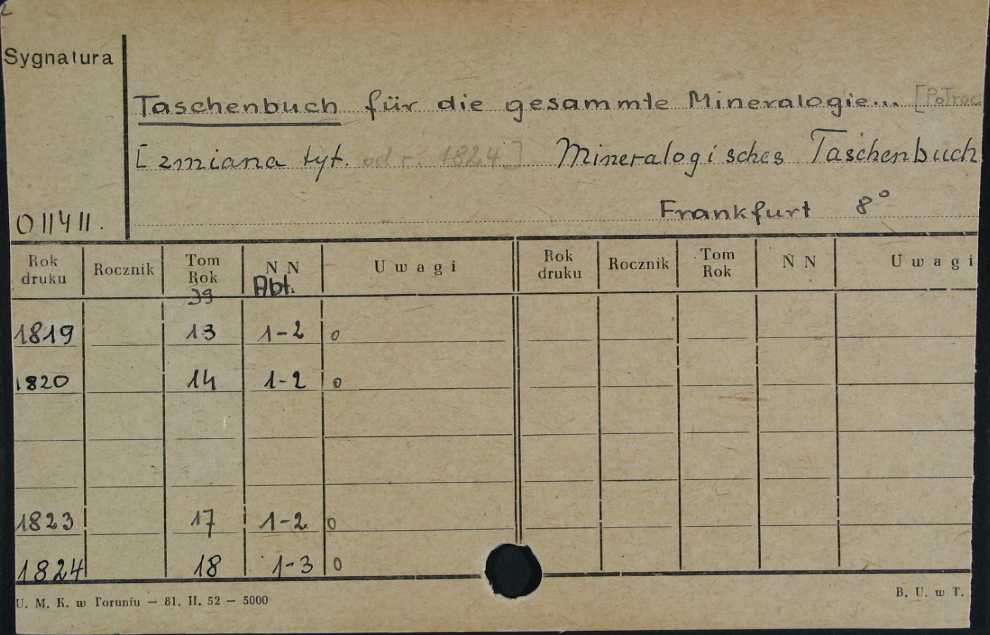 Sygnatura
Taschenbuch für die gesammte Mineralogie... [PoTroc
[zmiana tyt. od r. 1824] Mineralogisches Taschenbuch
Frankfurt 8°
011411.
Rok druku Rocznik Tom Rok N N Uwagi Rok druku Rocznik Tom Rok N N Uwagi
Jg Abt.
1819 13 1-2 o
1820 14 1-2 o
1823 17 1-2 o
1824 18 1-3 o
U. M. K. w Toruniu — 81. II. 52 — 5000
B. U. w T.